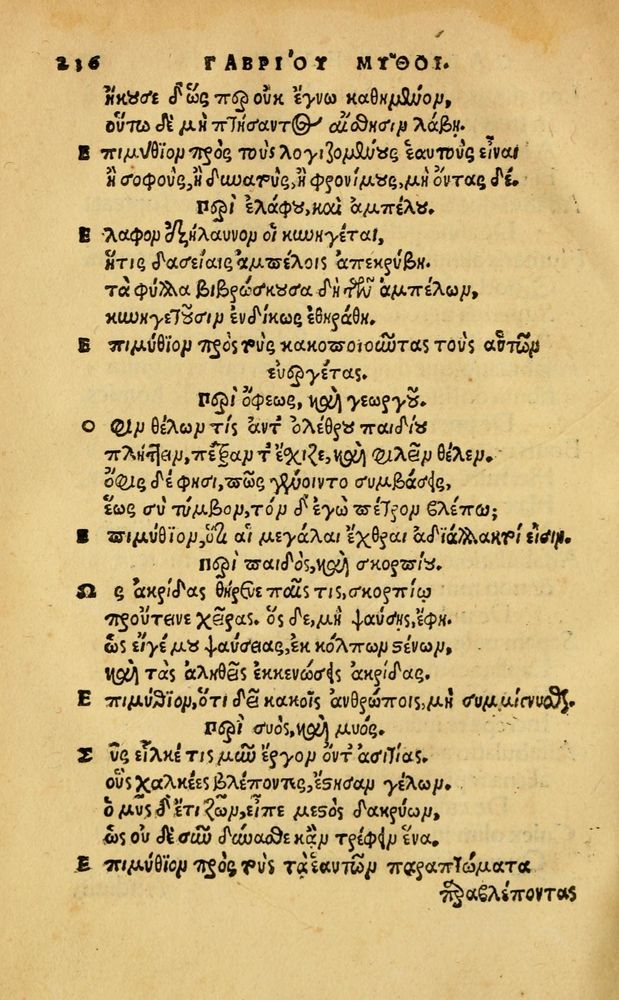 236 ΓΑΒΡΙΟΥ ΜΥΘΟΙ.
ἤκουσε δ' ὡς περ οὐκ ἔγνω καθημένον,
οὕτω δὲ μὴ πτήσαντος αἴσθησιν λάβῃ.
Ἐπιμύθιον πρὸς τοὺς λογιζομένους ἑαυτοὺς εἶναι
ἢ σοφοὺς, ἢ δυνατοὺς, ἢ φρονίμους, μὴ ὄντας δέ.
Περὶ ἐλάφου, καὶ ἀμπέλου.
Ἔλαφον ἐξήλαυνον οἱ κυνηγέται,
ἥτις δασείαις ἀμπέλοις ἀπεκρύβη.
τὰ φύλλα βιβρώσκουσα δὴ τῶν ἀμπέλων,
κυνηγετοῦσιν ἐνδίκως ἐθηράθη.
Ἐπιμύθιον πρὸς τοὺς κακοποιοῦντας τοὺς αὑτῶν
εὐεργέτας.
Περὶ ὄφεως, καὶ γεωργοῦ.
Ὄφιν θέλων τίς ἀντ' ὀλέθρου παιδίου
πλήττειν, πέτραν τ' ἔσχιζε, καὶ φιλεῖν θέλεν.
ὄφις δέ φησι, πῶς γένοιντο συμβάσεις,
ἕως σὺ τύμβον, τὸν δ' ἐγὼ πέτρον βλέπω;
Ἐπιμύθιον, ὅτι αἱ μεγάλαι ἔχθραι ἀδιάλλακτοί εἰσιν.
Περὶ παιδὸς, καὶ σκορπίου.
Ὡς ἀκρίδας θήρευε παῖς τις, σκορπίῳ
προὔτεινε χεῖρας. ὃς δὲ, μὴ ψαύσῃς, ἔφη.
ὡς εἴγέ μου ψαύσειας, ἐκ κόλπων ξένων,
καὶ τὰς ἀληθεῖς ἐκκενώσεις ἀκρίδας.
Ἐπιμύθιον, ὅτι δεῖ κακοῖς ἀνθρώποις, μὴ συμμίγνυσθαι.
Περὶ συὸς, καὶ μυός.
Σῦς εἷλκέ τις μῦν ἔργον ὄντ' ἀσιτίας.
οὓς χαλκέες βλέποντες, ἔστησαν γέλων.
ὁ μῦς δ' ἔτι ζῶν, εἶπε μεστὸς δακρύων,
ὡς οὐδὲ σῦν δύνασθε κἂν τρέφειν ἕνα.
Ἐπιμύθιον πρὸς τοὺς τὰ ἑαυτῶν παραπτώματα
παραβλέποντας